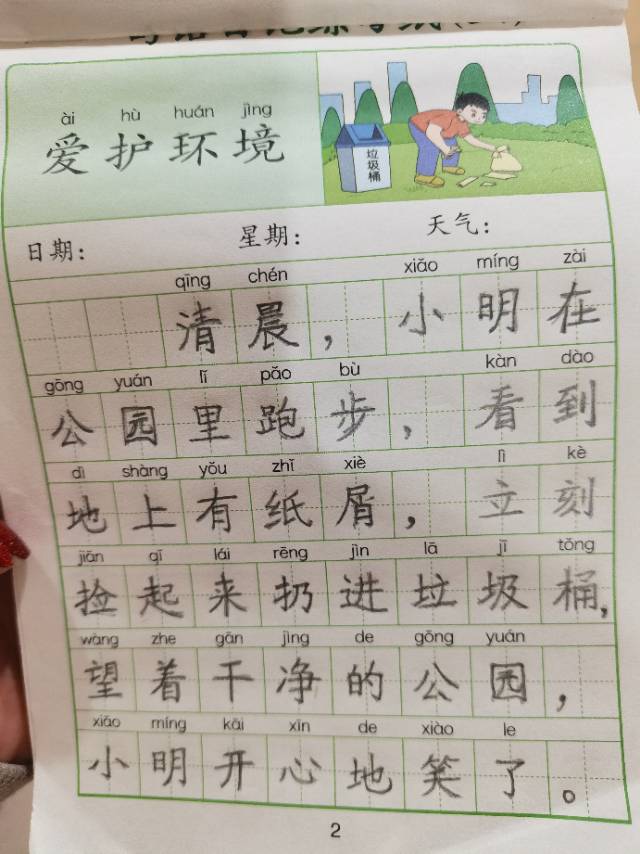 ài hù huán jìng
爱护环境
垃圾桶
日期： 星期： 天气：
qīng chén xiǎo míng zài
清晨，小明在
gōng yuán lǐ pǎo bù kàn dào
公园里跑步，看到
dì shàng yǒu zhǐ xiè lì kè
地上有纸屑，立刻
jiǎn qǐ lái rēng jìn lā jī tǒng
捡起来扔进垃圾桶，
wàng zhe gān jìng de gōng yuán
望着干净的公园，
xiǎo míng kāi xīn de xiào le
小明开心地笑了。
2